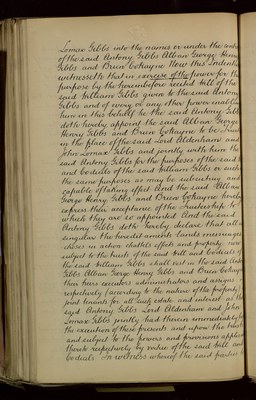 Lomax Gibbs into the names or under the control
of the said Antony Gibbs Alban George Henry
Gibbs and Brien Cokayne Now this Indenture
witnesseth that in exercise of the power for this
purpose by the hereinbefore recited Will of the
said William Gibbs given to the said Antony
Gibbs and of every or any other power enabling
him in this behalf he the said Antony Gibbs
doth hereby appoint the said Alban George
Henry Gibbs and Brien Cokayne to be Trustees
in the place of the said Lord Aldenham and
John Lomax Gibbs and jointly with him the
said Antony Gibbs for the purposes of the said Will
and Codicils of the said William Gibbs or such of
the same purposes as may be subsisting and
capable of taking effect And the said Alban
George Henry Gibbs and Brien Cokayne hereby
express their acceptance of the Trusteeship to
which they are so appointed And the said
Antony Gibbs doth hereby declare that all and
singular the hereditaments lands moneys
choses in action chattels effects and property now
subject to the trusts of the said Will and Codicils of
the said William Gibbs shall vest in the said Antony
Gibbs Alban George Henry Gibbs and Brien Cokayne
their heirs executors administrators and assigns
respectively (according to the nature of the property) as
joint tenants for all such estate and interest as the
said Antony Gibbs Lord Aldenham and John
Lomax Gibbs jointly had therein immediately before
the execution of these presents and upon the trusts
and subject to the powers and provisions applicable
thereto respectively by virtue of the said Will and
Codicils In witness whereof the said parties